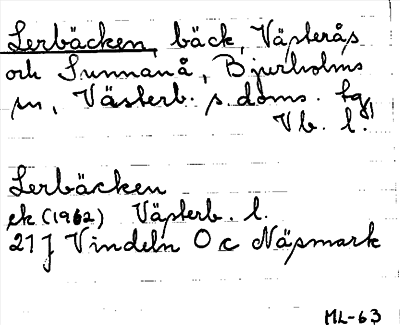 Lerbäcken, bäck, Västerås
och Sunnanå, Bjurholms
sn, Västerb. s. doms. tg,
Vb. l.
Lerbäcken
ek (1962) Västerb. l.
21 J Vindeln 0 c Näsmark
ML-63